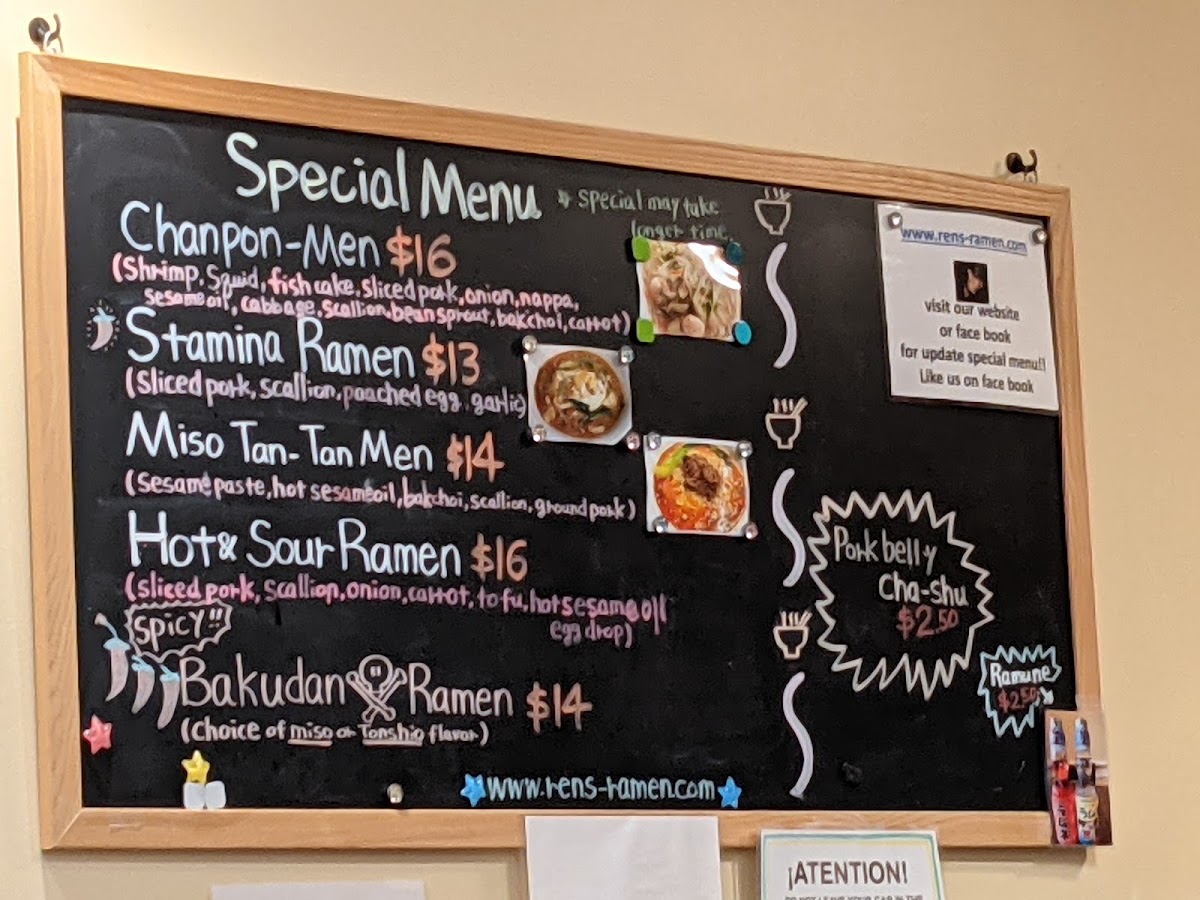 Special Menu
* Special may take
longer time.
Chanpon-Men $16
(Shrimp, Squid, fish cake, sliced pork, onion, nappa,
sesame oil, cabbage, scallion, bean sprout, bakchoi, carrot)
Stamina Ramen $13
(Sliced pork, scallion, poached egg, garlic)
Miso Tan-Tan Men $14
(Sesame paste, hot sesame oil, bakchoi, scallion, ground pork)
Hot & Sour Ramen $16
(sliced pork, scallion, onion, carrot, tofu, hot sesame oil
egg drop)
SPICY!!
Bakudan Ramen $14
(Choice of miso or Tonshio flavor)
www.rens-ramen.com
www.rens-ramen.com
visit our website
or face book
for update special menu!!
Like us on face book
Pork belly
Cha-shu
$2.50
Ramune
$2.50
¡ATENTION!